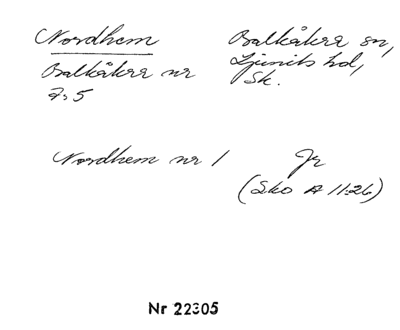 Nordhem Balkåkra sn,
Balkåkra nr Ljunits hd,
7:5 Sk.
Nordhem nr 1 Jr
(Sko A 11:26)
Nr 22305